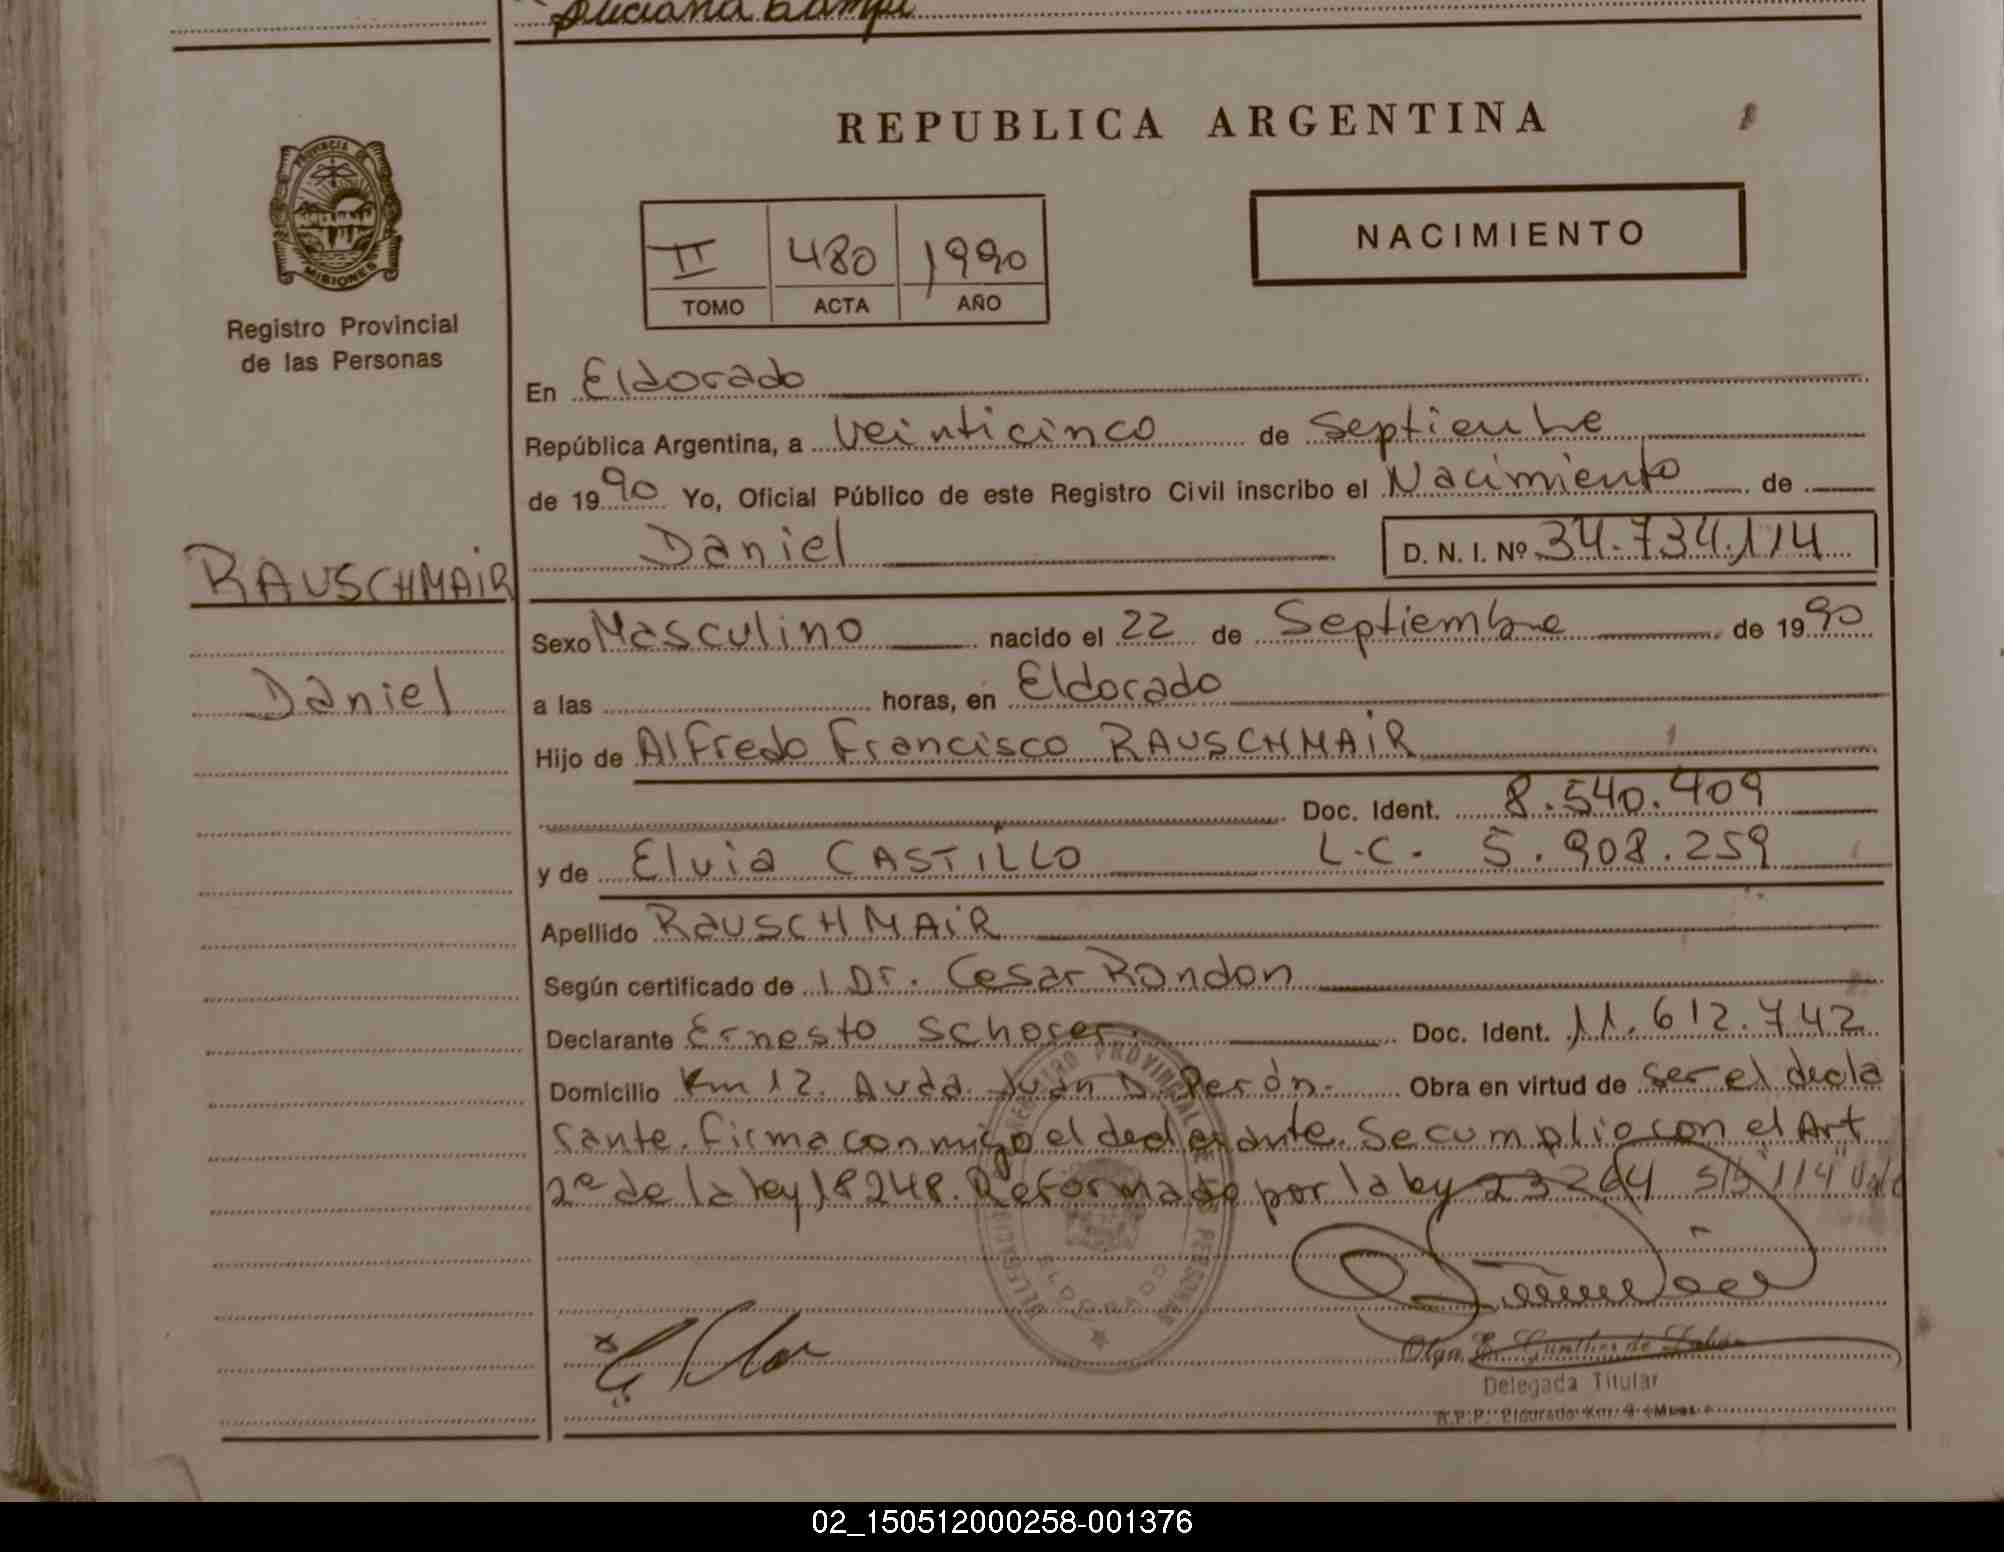 Luciana
REPUBLICA ARGENTINA
PROVINCIA DE
MISIONES
Registro Provincial
de las Personas
II 480 1990
TOMO ACTA AÑO
NACIMIENTO
En Eldorado
República Argentina, a veinticinco de Septiembre
de 1990 Yo, Oficial Público de este Registro Civil inscribo el Nacimiento de
Daniel D. N. I. Nº 34.734.114
RAUSCHMAIR
Daniel
Sexo Masculino nacido el 22 de Septiembre de 1990
a las horas, en Eldorado
Hijo de Alfredo Francisco RAUSCHMAIR
Doc. Ident. 8.540.409
y de Elvia CASTILLO L.C. 5.908.259
Apellido RAUSCHMAIR
Según certificado de l Dr. Cesar Rondon
Declarante Ernesto Schoser. Doc. Ident. 11.612.742
Domicilio Km 12. Avda. Juan D. Perón. Obra en virtud de ser el decla
rante. Firma conmigo el declarante. Se cumplio con el Art
2º de la ley 18248. Reformado por la ley 23264 s/b "114" Vale
REGISTRO PROVINCIAL DE LAS PERSONAS
ELDORADO
Olga E. Gunther de
Delegada Titular
R.P.P. Eldorado Km. 9 (Mnes.)
02_150512000258-001376